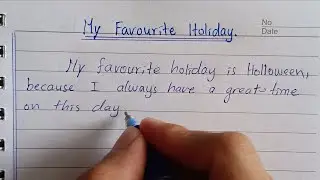 My Favourite Holiday.
No
Date
My favourite holiday is Holloween,
because I always have a great time
on this day